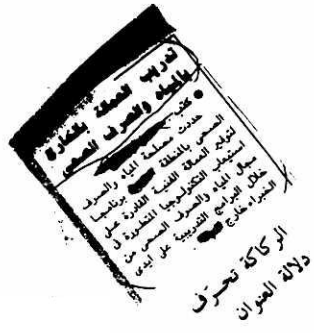 تدريب العمالة بالمنارة
بالمياه والصرف الصحى
● كتب
حددت مصلحة المياه والصرف
الصحى بالمنطقة برنامجها
لتوفير العمالة الفنية القادرة على
استيعاب التكنولوجيا المتطورة فى
مجال المياه والصرف الصحى من
خلال البرامج التدريبية على ايدى
الخبراء خارج
الركاكة تحرّف
دلالة العنوان